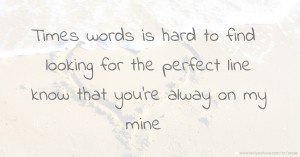 Times words is hard to find
looking for the perfect line
know that you're alway on my
mine